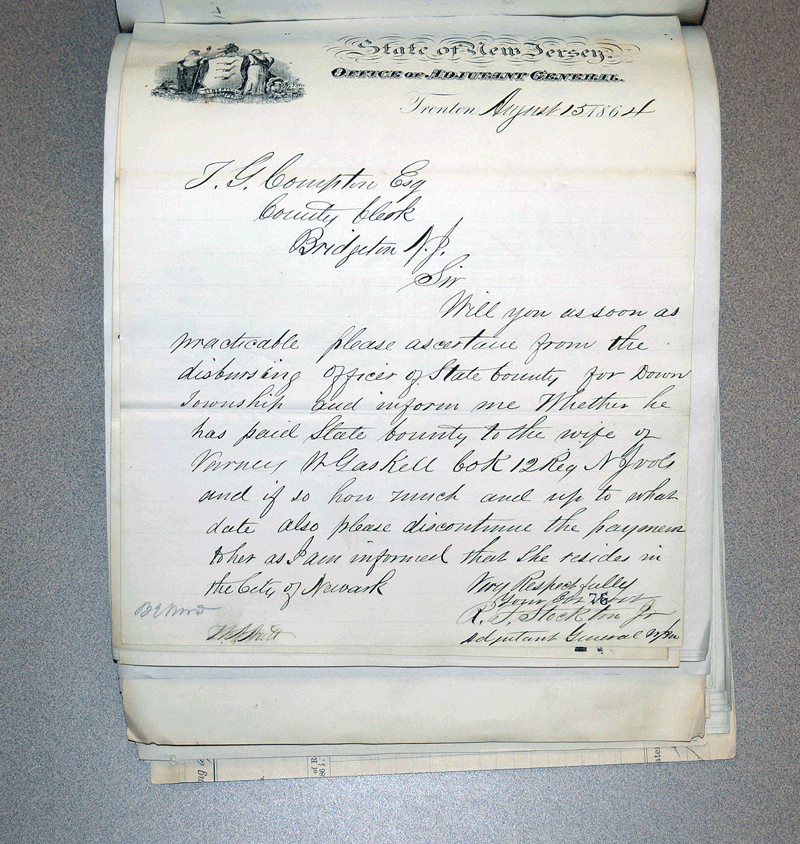 State of New Jersey.
OFFICE OF ADJUTANT GENERAL.
Trenton August 15 1864
T. G. Compton Esq
County Clerk
Bridgeton N.J.
Sir
Will you as soon as
practicable please ascertain from the
disbursing officer of State bounty for Down
Township and inform me Whether he
has paid State bounty to the wife of
W Gaskell Co K 12 Reg N J vols
and if so how much and up to what
date also please discontinue the payment
to her as I am informed that She resides in
the City of Newark
Very Respectfully
Your Obt
76
R. F. Stockton Jr
Adjutant General